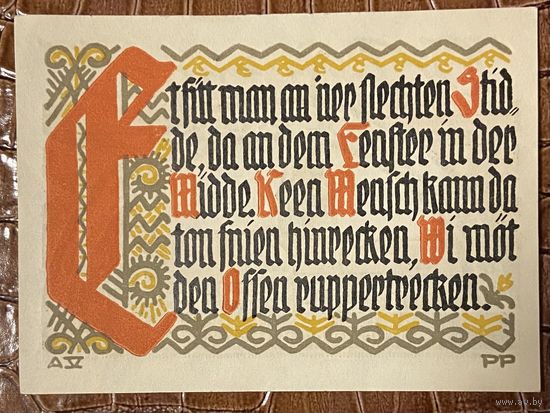 Et sitt man an iner slechten Stid,
de, da an dem Fenster in der
Midde. Keen Mensch kann da
ton snien hinrecken, Wi möt
den Ossen ruppertrecken.
AV PP
www.ay.by